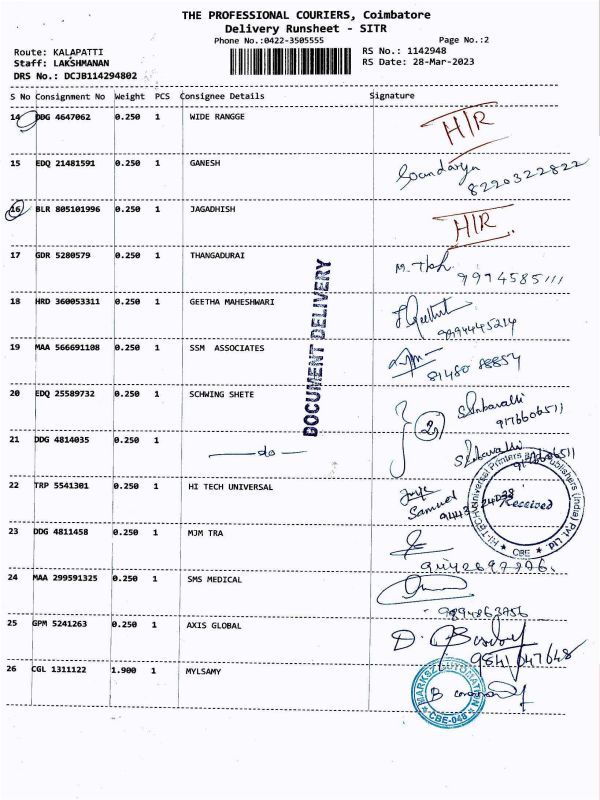 THE PROFESSIONAL COURIERS, Coimbatore
Delivery Runsheet - SITR
Phone No.:0422-3505555 Page No.:2
Route: KALAPATTI RS No.: 1142948
Staff: LAKSHMANAN RS Date: 28-Mar-2023
DRS No.: DCJB114294802
S No Consignment No Weight PCS Consignee Details Signature
14 DDG 4647062 0.250 1 WIDE RANGGE H/R
15 EDQ 21481591 0.250 1 GANESH Soundarya
8220322822
16 BLR 805101996 0.250 1 JAGADHISH H/R
17 GDR 5280579 0.250 1 THANGADURAI
9994585111
18 HRD 360053311 0.250 1 GEETHA MAHESHWARI
9894445214
19 MAA 566691108 0.250 1 SSM ASSOCIATES
81480 88857
20 EDQ 25589732 0.250 1 SCHWING SHETE
9176606511
2
21 DDG 4814035 0.250 1 —do—
9176606511
22 TRP 5541301 0.250 1 HI TECH UNIVERSAL
Samuel
23 DDG 4811458 0.250 1 MJM TRA
24 MAA 299591325 0.250 1 SMS MEDICAL
9894863756
25 GPM 5241263 0.250 1 AXIS GLOBAL
9841047648
26 CGL 1311122 1.900 1 MYLSAMY
DOCUMENT DELIVERY
HI-TECH Universal Printers & Publishers (India) Pvt. Ltd
Received
CBE
MARKSZ AUTOMATION
CBE-048